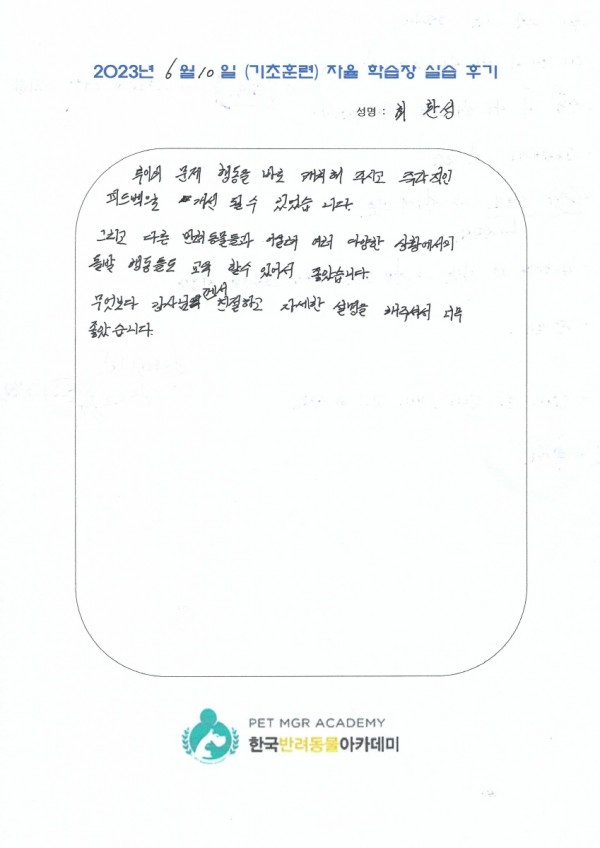 2023년 6월 10일 (기초훈련) 자율 학습장 실습 후기
성명 : 최 환성
루이의 문제 행동을 바로 캐치해 주시고 즉각적인
피드백으로 개선 될 수 있었습니다.
그리고 다른 반려동물들과 어울려 여러 다양한 상황에서의
돌발 행동들도 교육 할수 있어서 좋았습니다.
무엇보다 강사님께서 친절하고 자세한 설명을 해주셔서 너무
좋았습니다.
PET MGR ACADEMY
한국반려동물아카데미